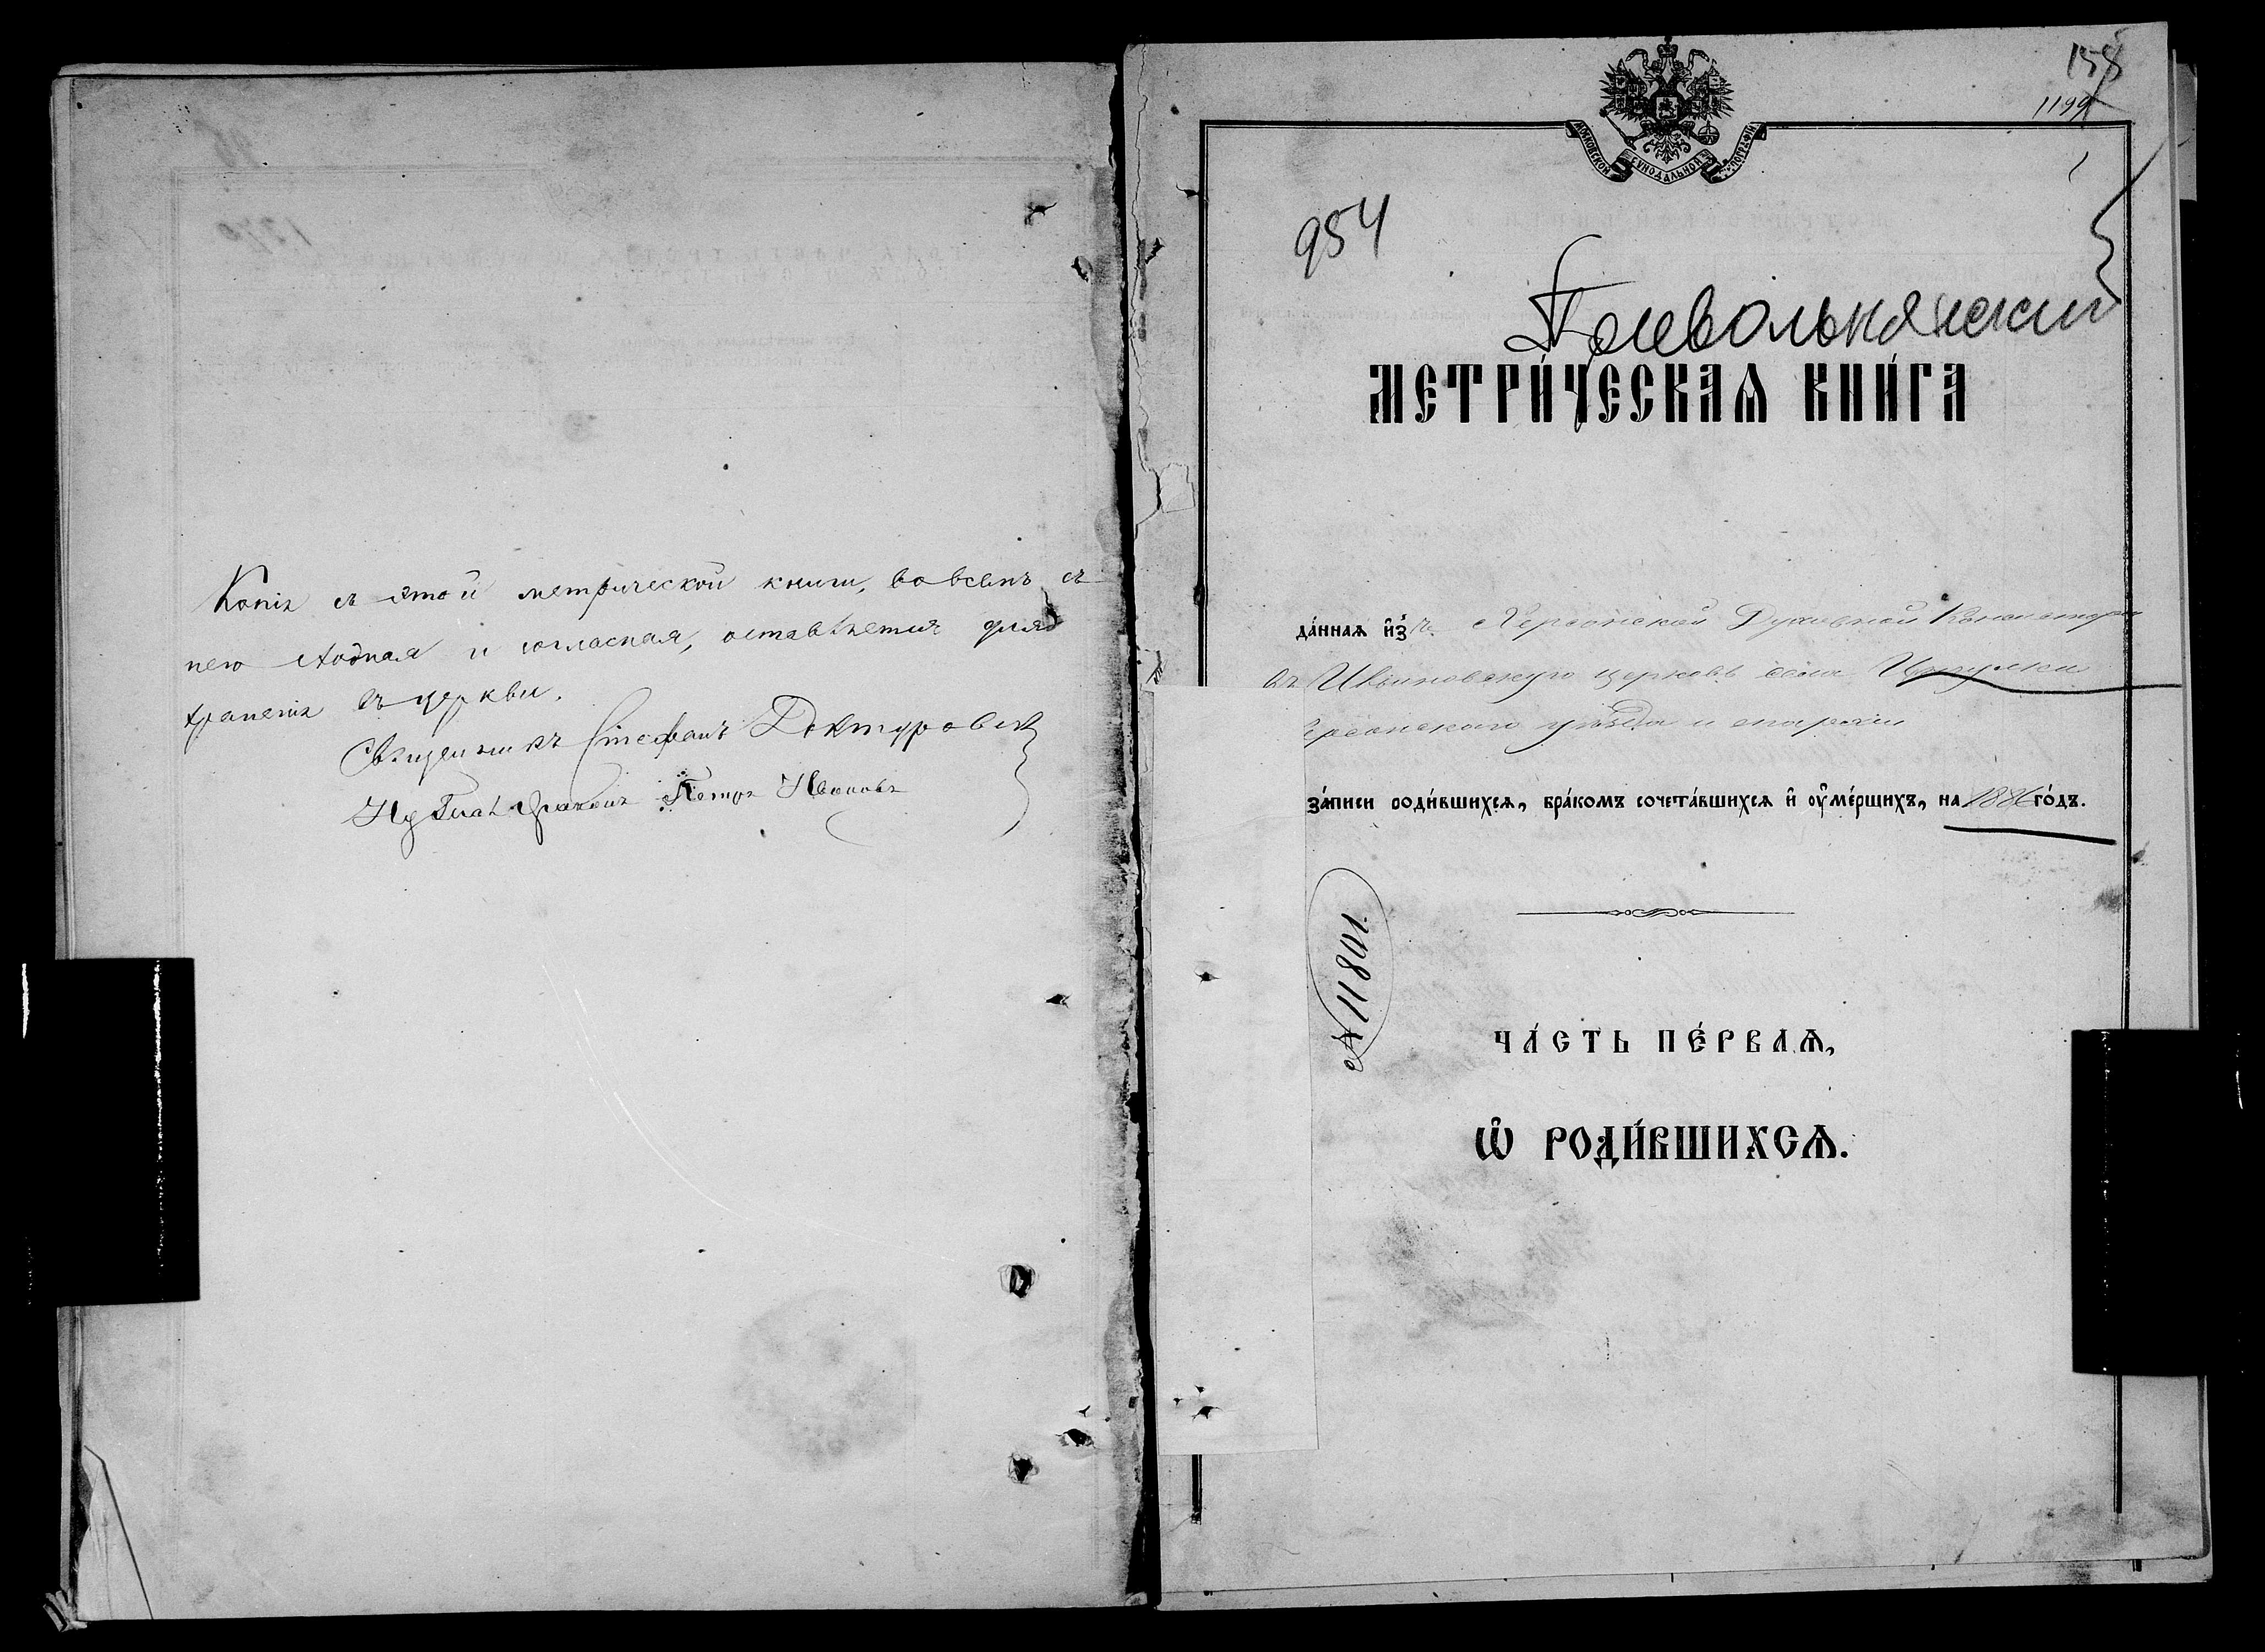 Копія съ этой метрической книги, во всемъ съ
нею сходная и согласная, оставляется для
храненія въ церкви.
Священникъ Стефанъ Доктуровскій
Псаломщикъ Петръ Ивановъ
158
1199
МОСКОВСКОЙ СѴНОДАЛЬНОЙ ТИПОГРАФІИ
954
Привольнянский
МЕТРИ́ЧЕСКАѦ КНИ́ГА
да́ннаѧ и҆зъ Херсонской Духовной Консисторіи
въ церковь села
Херсонскаго уѣзда и епархіи
за́писи роди́вшихсѧ, бра́комъ сочета́вшихсѧ и҆ оу҆ме́рщихъ, на 1886 го́дъ.
№ 11801.
ЧА́СТЬ ПЕ́РВАѦ,
Ѡ҆ РОДИ́ВШИХСѦ.